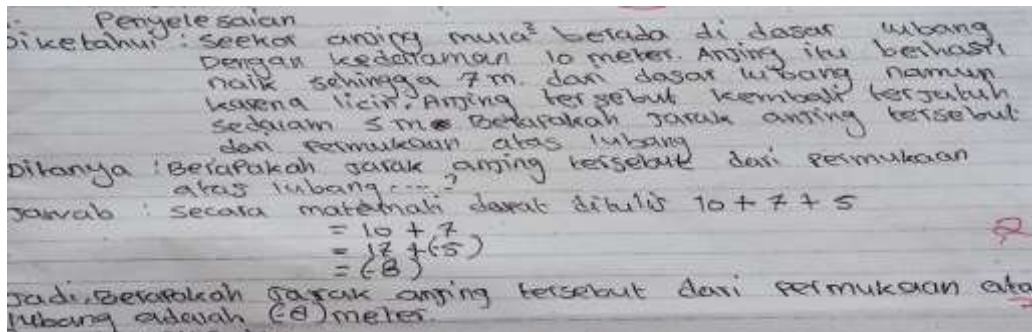 Penyelesaian
Diketahui : seekor anjing mula² berada di dasar lubang
Dengan kedalaman 10 meter. Anjing itu berhasil
naik sehingga 7 m. dari dasar lubang namun
karena licin. Anjing tersebut kembali terjatuh
sedalam 5 m Berapakah jarak anjing tersebut
dari permukaan atas lubang
Ditanya : Berapakah jarak anjing tersebut dari permukaan
atas lubang....?
Jawab : secara matemati dapat ditulis 10 + 7 + 5
= 10 + 7
= 17 + (-5)
= (-8)
Jadi, Berapakah jarak anjing tersebut dari permukaan ata
lubang adalah (-8) meter.
2